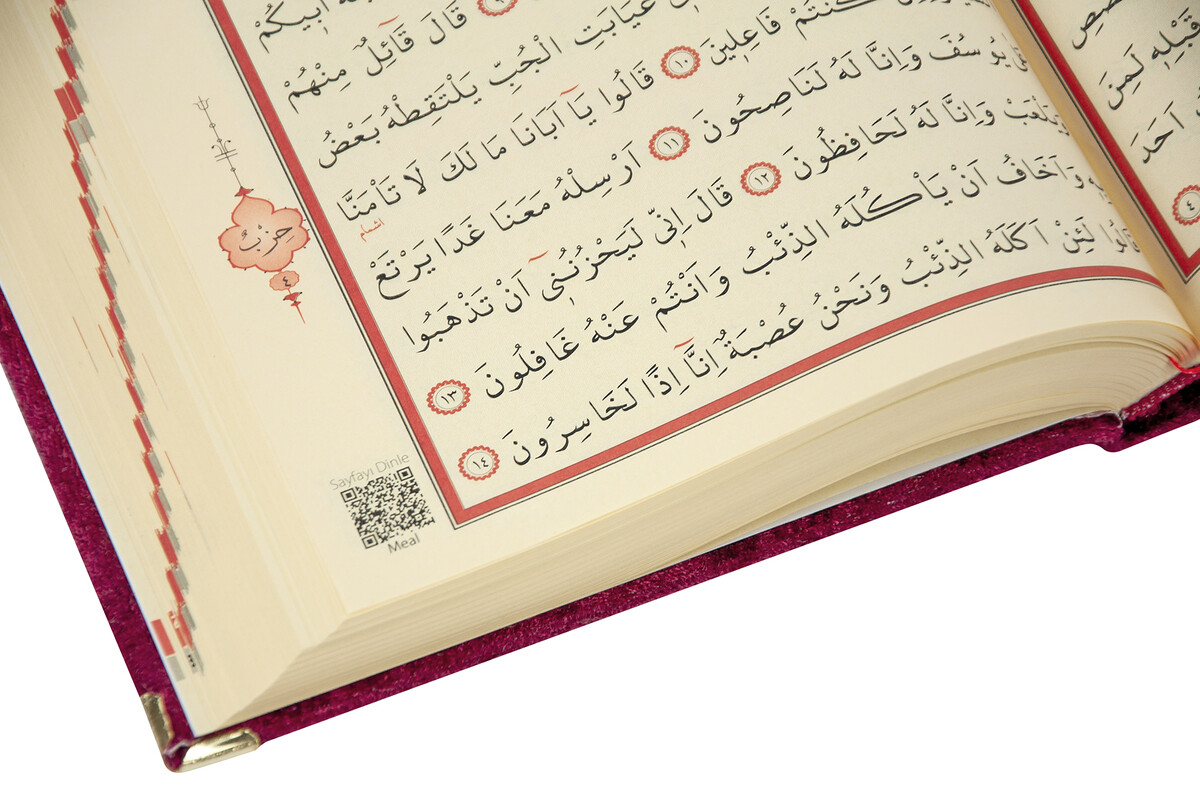 قَبْلِهٖ لَمِنَ
اَحَدَ
٤
اَبٖيكُمْ
٩ قَالَ قَٓائِلٌ مِنْهُمْ
غَيَابَتِ الْجُبِّ يَلْتَقِطْهُ بَعْضُ
كُنْتُمْ فَاعِلٖينَ ١٠ قَالُوا يَٓا اَبَانَا مَا لَكَ لَا تَأْمَنَّا
اشمام
يُوسُفَ وَاِنَّا لَهُ لَنَاصِحُونَ ١١ اَرْسِلْهُ مَعَنَا غَدًا يَرْتَعْ
وَيَلْعَبْ وَاِنَّا لَهُ لَحَافِظُونَ ١٢ قَالَ اِنّٖي لَيَحْزُنُنٖٓي اَنْ تَذْهَبُوا
وَاَخَافُ اَنْ يَأْكُلَهُ الذِّئْبُ وَاَنْتُمْ عَنْهُ غَافِلُونَ ١٣
قَالُوا لَئِنْ اَكَلَهُ الذِّئْبُ وَنَحْنُ عُصْبَةٌ اِنَّٓا اِذًا لَخَاسِرُونَ ١٤
حِزْبْ
٤
Sayfayı Dinle
Meal